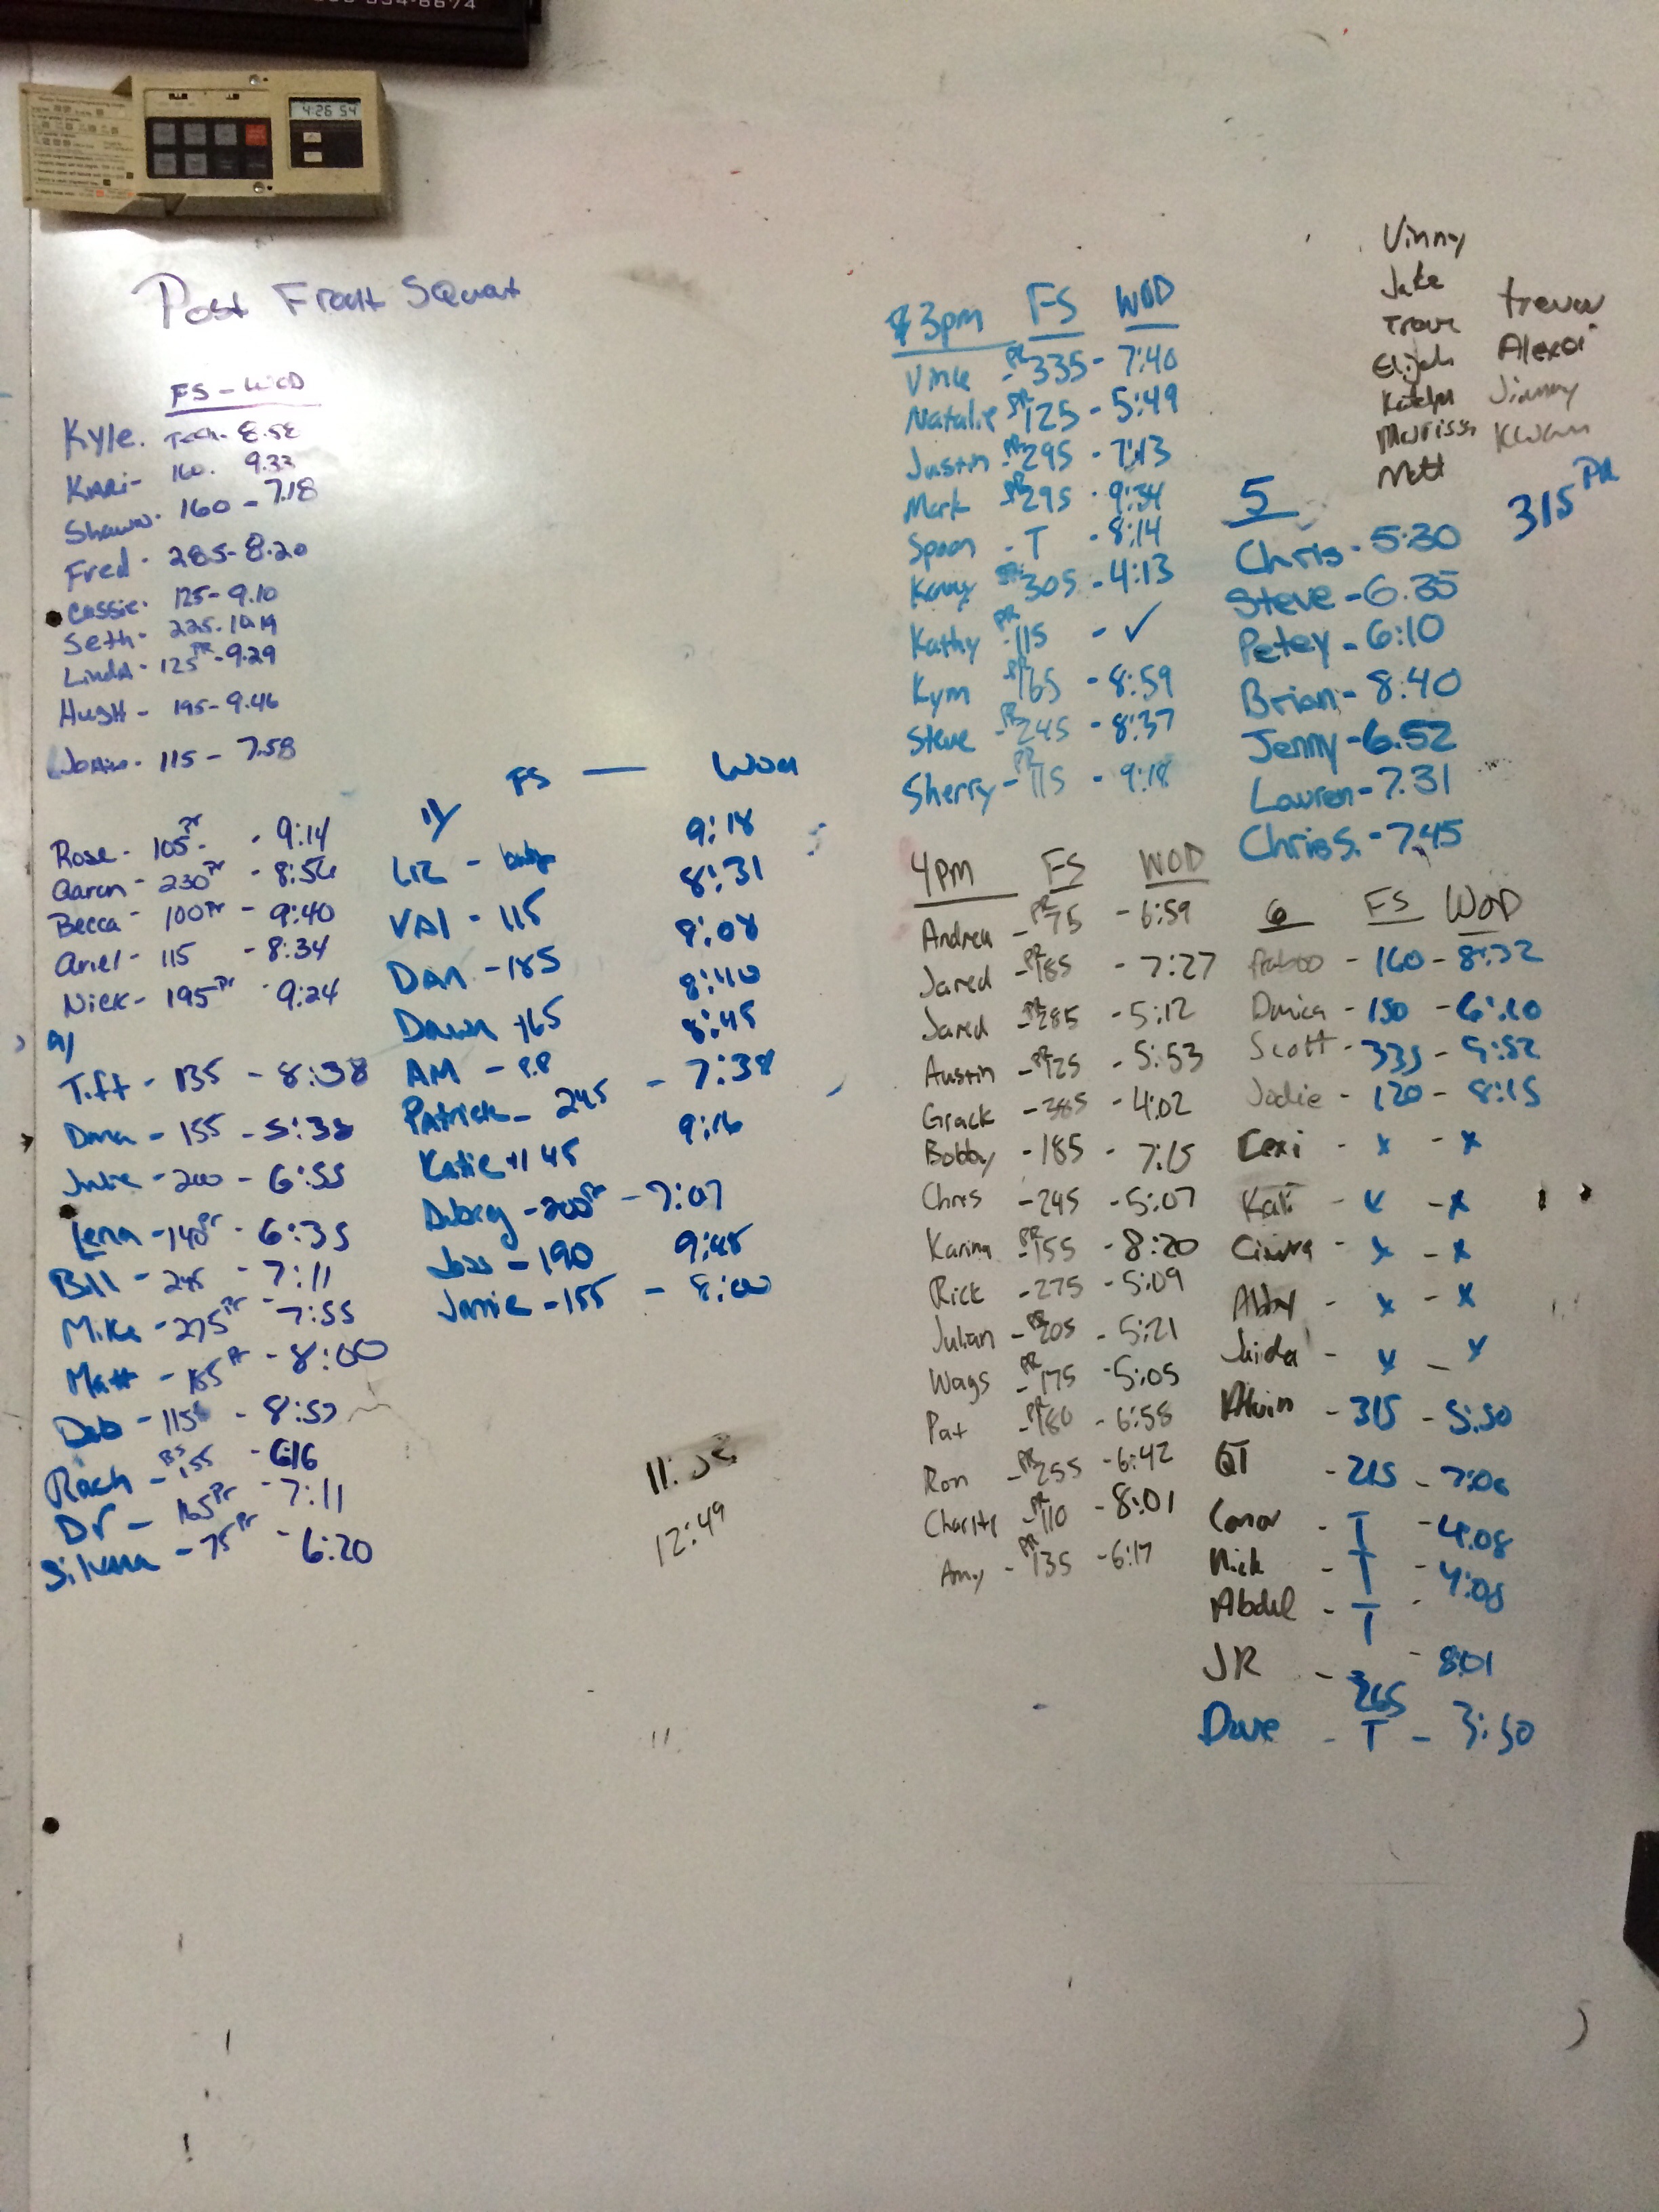 4:26 54
Post Front Squat
FS - WOD
Kyle. Tech. 8.58
KARi- 160. 9.33
Shawn. 160 - 7.18
Fred. 285- 8.20
Cassie. 125- 9.10
Seth- 225.
Linda- 125 PR -9.29
Hugh - 195- 9.46
115 - 7.58
Rose- 105 Pr - 9:14
Aaron - 230 Pr - 8:56
Becca - 100 Pr - 9:40
Ariel - 115 - 8:34
Nick- 195 Pr - 9:24
9/
Tiff - 135 - 8:38
Dana - 155 - 5:38
Julie - 200 - 6:55
Lena - 140 Pr - 6:35
Bill - 245 - 7:11
Mike - 275 Pr - 7:55
Matt - 185 Pr - 8:00
Deb - 115 - 8:57
Rach - BS 155 - 6:16
Dr - 165 Pr - 7:11
Silvana - 75 Pr - 6:20
FS — WOD
11/
Liz - 9:18
VAl - 115 8:31
Dan - 185 8:08
Dawn - 165 8:40
AM - 8:45
Patrick - 245 - 7:38
Katie - 145 9:16
- 200 Pr - 7:07
Joss - 190 9:45
Jamie - 155 - 8:00
12:49
3pm FS WOD
Vince - PR 335 - 7:40
Natalie PR 125 - 5:49
Justin - PR 295 - 7:13
Mark PR 295 - 9:34
Spoon - T - 8:14
Kenny 305 - 4:13
Kathy PR 115 - ✓
Kym PR 165 - 8:59
Steve - PR 245 - 8:37
Sherry - PR 115 - 9:18
4pm FS WOD
Andrea - PR 75 - 6:59
Jared - PR 185 - 7:27
Jared - PR 285 - 5:12
Austin - PR 125 - 5:53
Grack - 385 - 4:02
Bobby - 185 - 7:15
Chris - 245 - 5:07
Karina - PR 155 - 8:20
Rick - 275 - 5:09
Julian - PR 205 - 5:21
Wags - PR 175 - 5:05
Pat - PR 180 - 6:58
Ron - PR 255 - 6:42
Charity - PR 110 - 8:01
Amy - PR 135 - 6:17
Vinny
Jake
Elijah
Katelyn
Marissa
Matt
Trevor
Alexai
Jimmy
Kwan
315 PR
5
Chris - 5:30
Steve - 6:35
Petey - 6:10
Brian - 8:40
Jenny - 6.52
Lauren - 7.31
Chris S. - 7:45
6 FS WOD
- 160 - 8:32
Danica - 150 - 6:10
Scott - 335 - 5:52
Jodie - 120 - 8:15
Lexi - x - x
Kali - x - x
- x - x
Abby - x - x
Jaida - x - x
- 315 - 5:50
QT - 215 - 7:06
Conor - T - 4:08
Nick - T - 4:08
Abdul - T -
JR - 265 - 8:01
Dave - T - 3:50